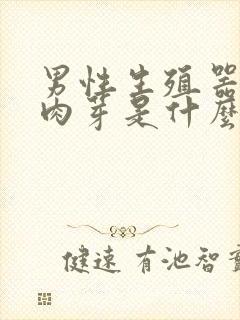 男性生殖器
肉芽是什麼
健速 有池智